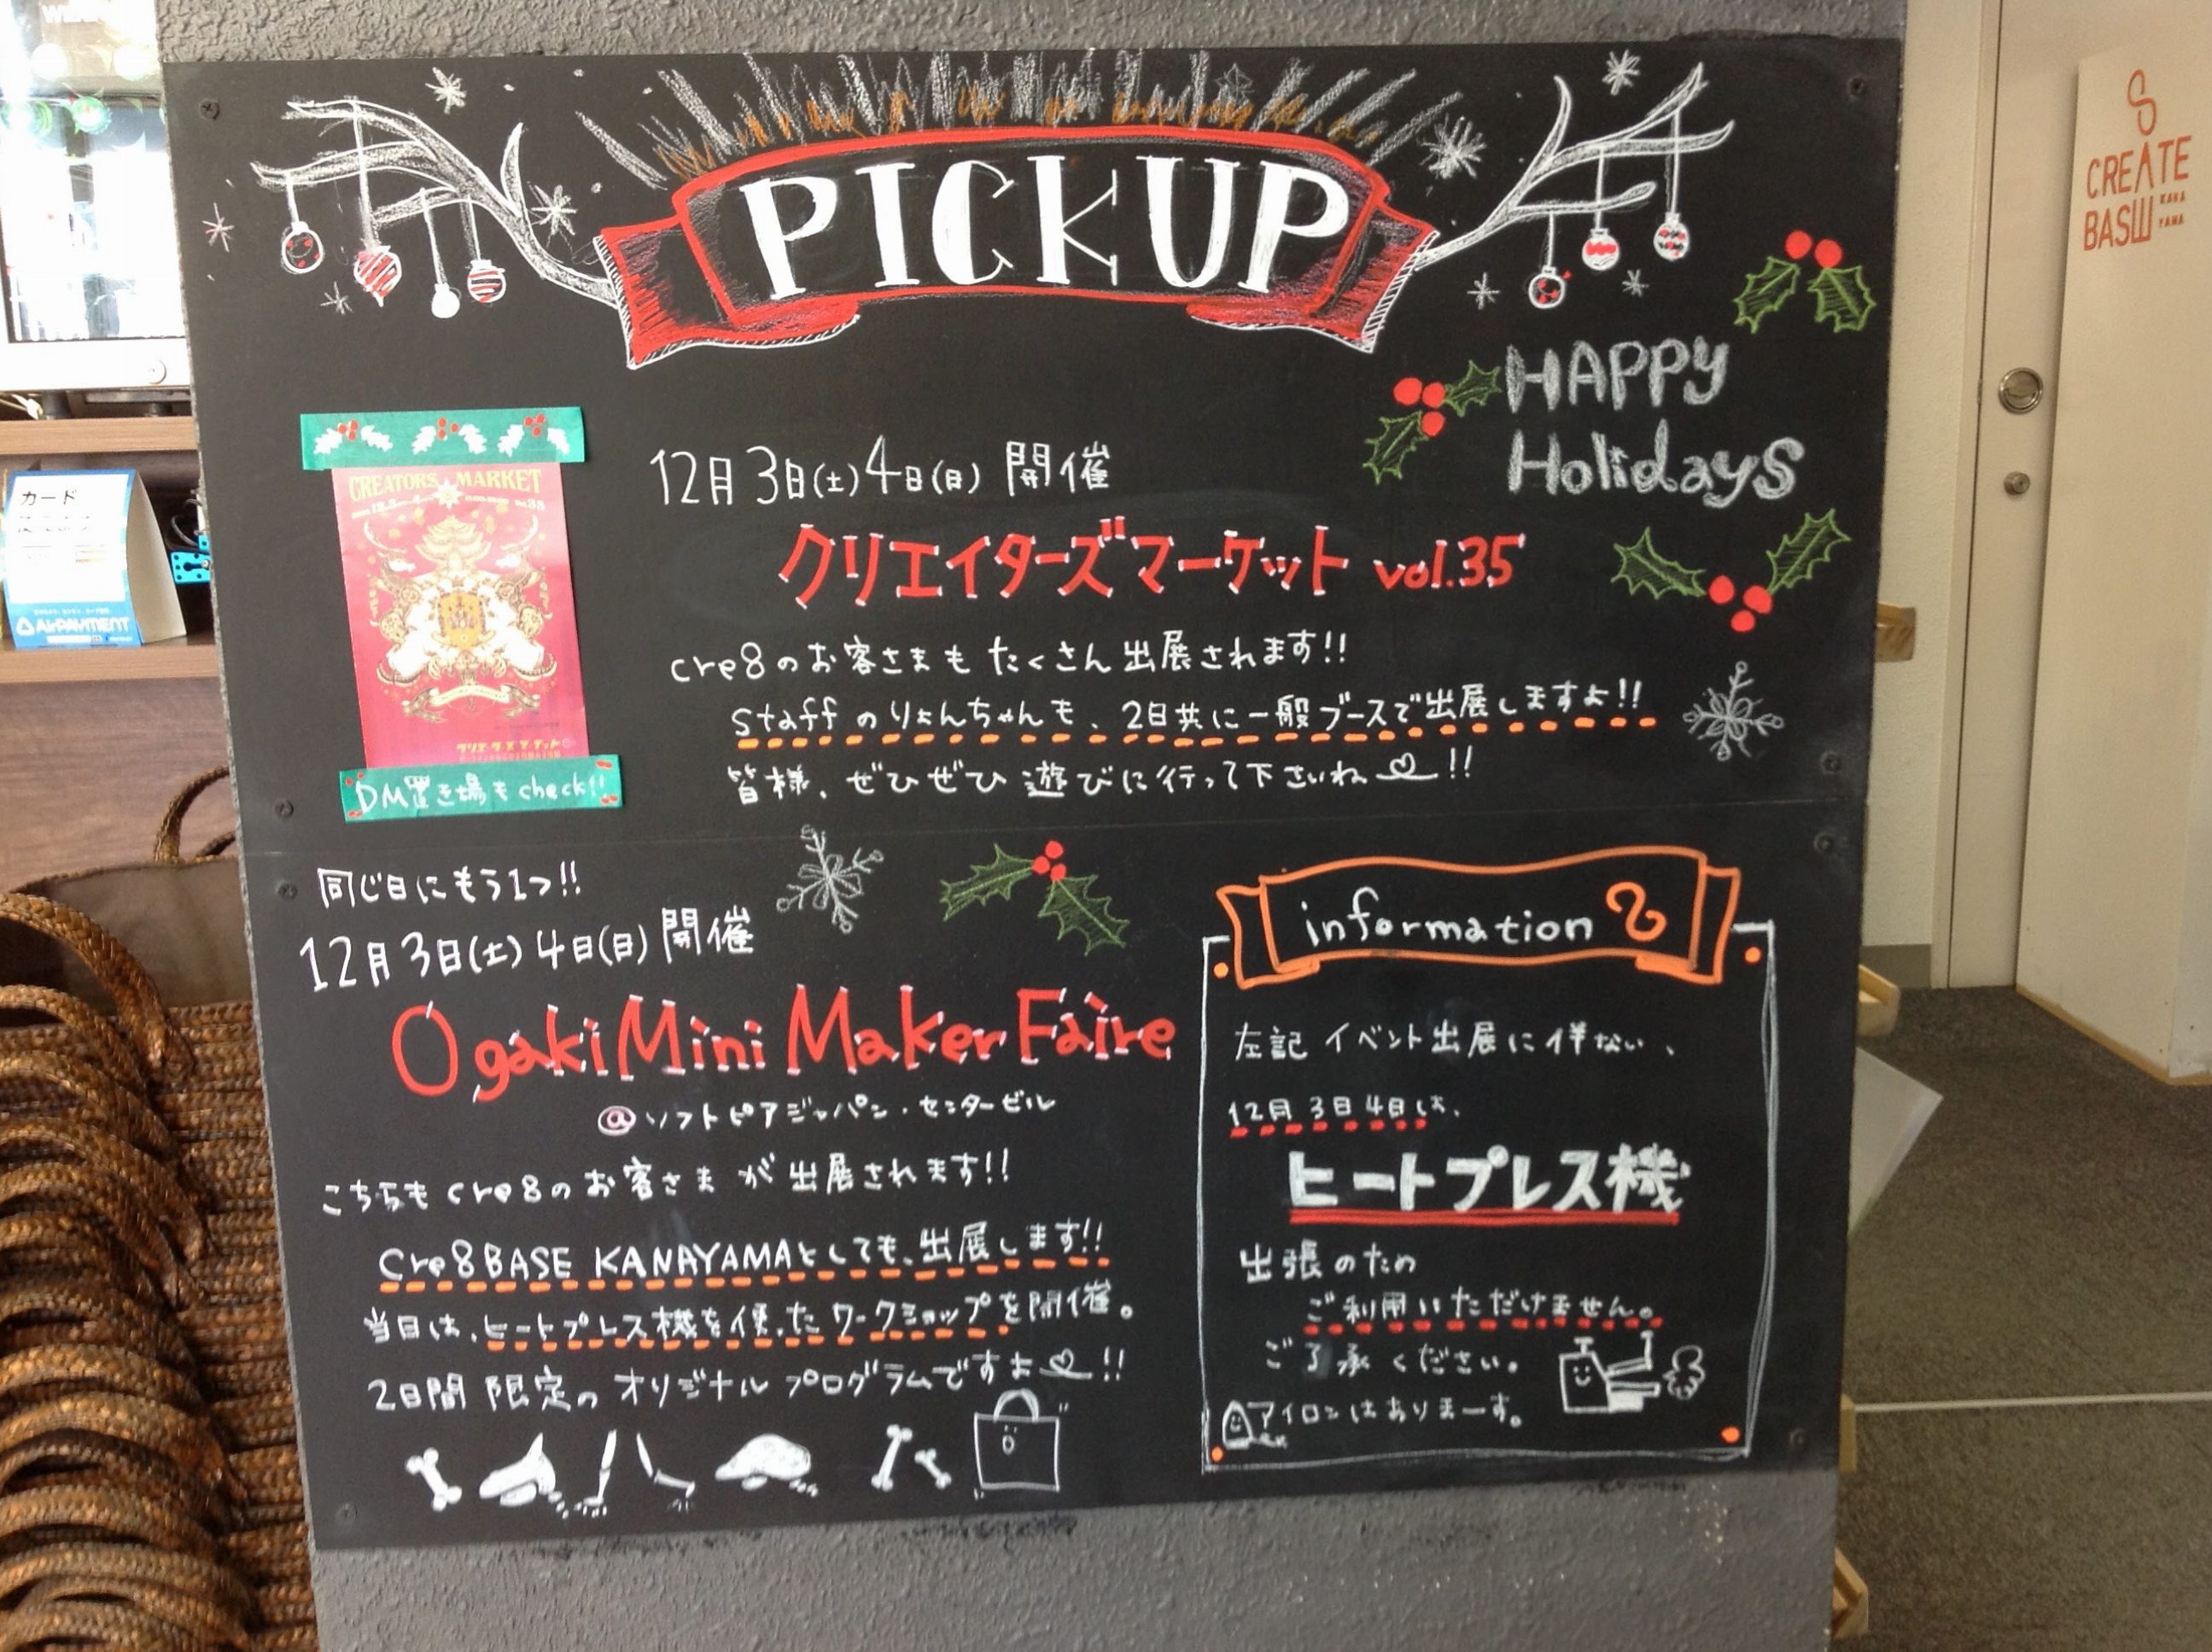 PICKUP
HAPPY
Holidays
CREATORS MARKET
12月3日(土)4日(日) 開催
クリエイターズマーケット vol.35
cre8のお客さまもたくさん出展されます!!
staffのりょんちゃんも、2日共に一般ブースで出展しますよ!!
皆様、ぜひぜひ遊びに行って下さいね!!
DM置き場もcheck!!
同じ日にもう1つ!!
12月3日(土)4日(日)開催
Ogaki Mini Maker Faire
@ソフトピアジャパン・センタービル
こちらもcre8のお客さまが出展されます!!
Cre8BASE KANAYAMAとしても、出展します!!
当日は、ヒートプレス機を使ったワークショップを開催。
2日間限定のオリジナルプログラムですよ!!
information
左記イベント出展に伴ない、
12月3日4日は、
ヒートプレス機
出張のため
ご利用いただけません。
ご了承ください。
アイロンはありまーす。
CREATE
BASE
KANA
YAMA
カード
AirPAYMENT